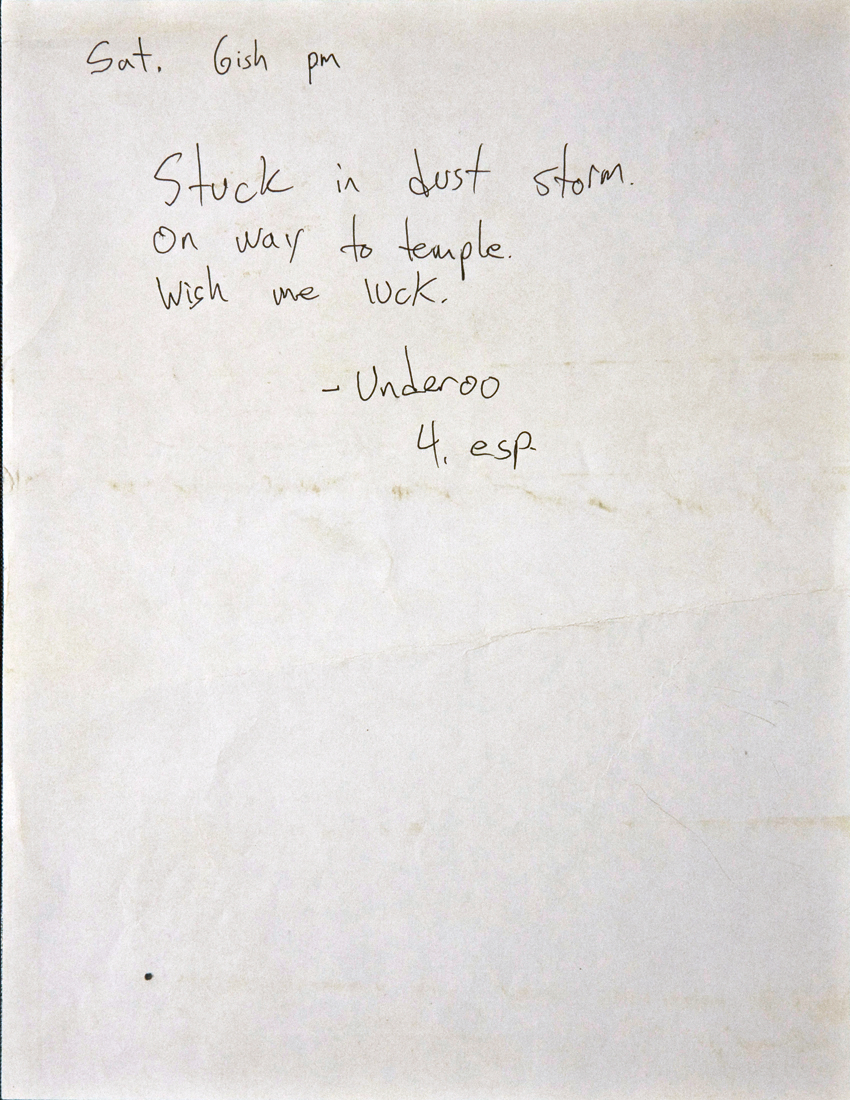 Sat. 6ish pm
Stuck in dust storm.
On way to temple.
Wish me luck.
- Underoo
4. esp.